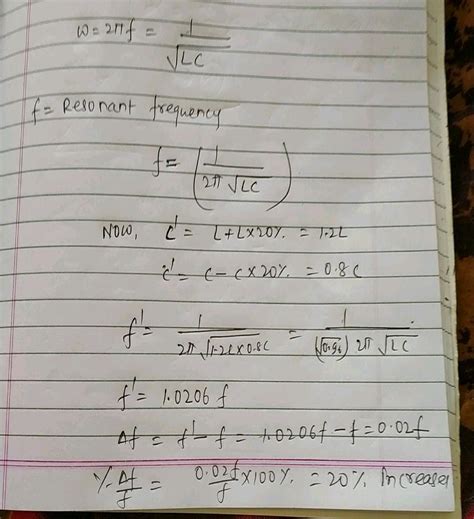 ω = 2πf = 1/√LC
f = Resonant frequency
f = (1/2π√LC)
Now, L' = L + L×20% = 1.2L
C' = C - C×20% = 0.8C
f' = 1/2π√1.2L×0.8C = 1/(√0.96) 2π √LC
f' = 1.0206 f
Δf = f' - f = 1.0206f - f = 0.02f
% Δf/f = 0.02f/f × 100% = 20% Increases